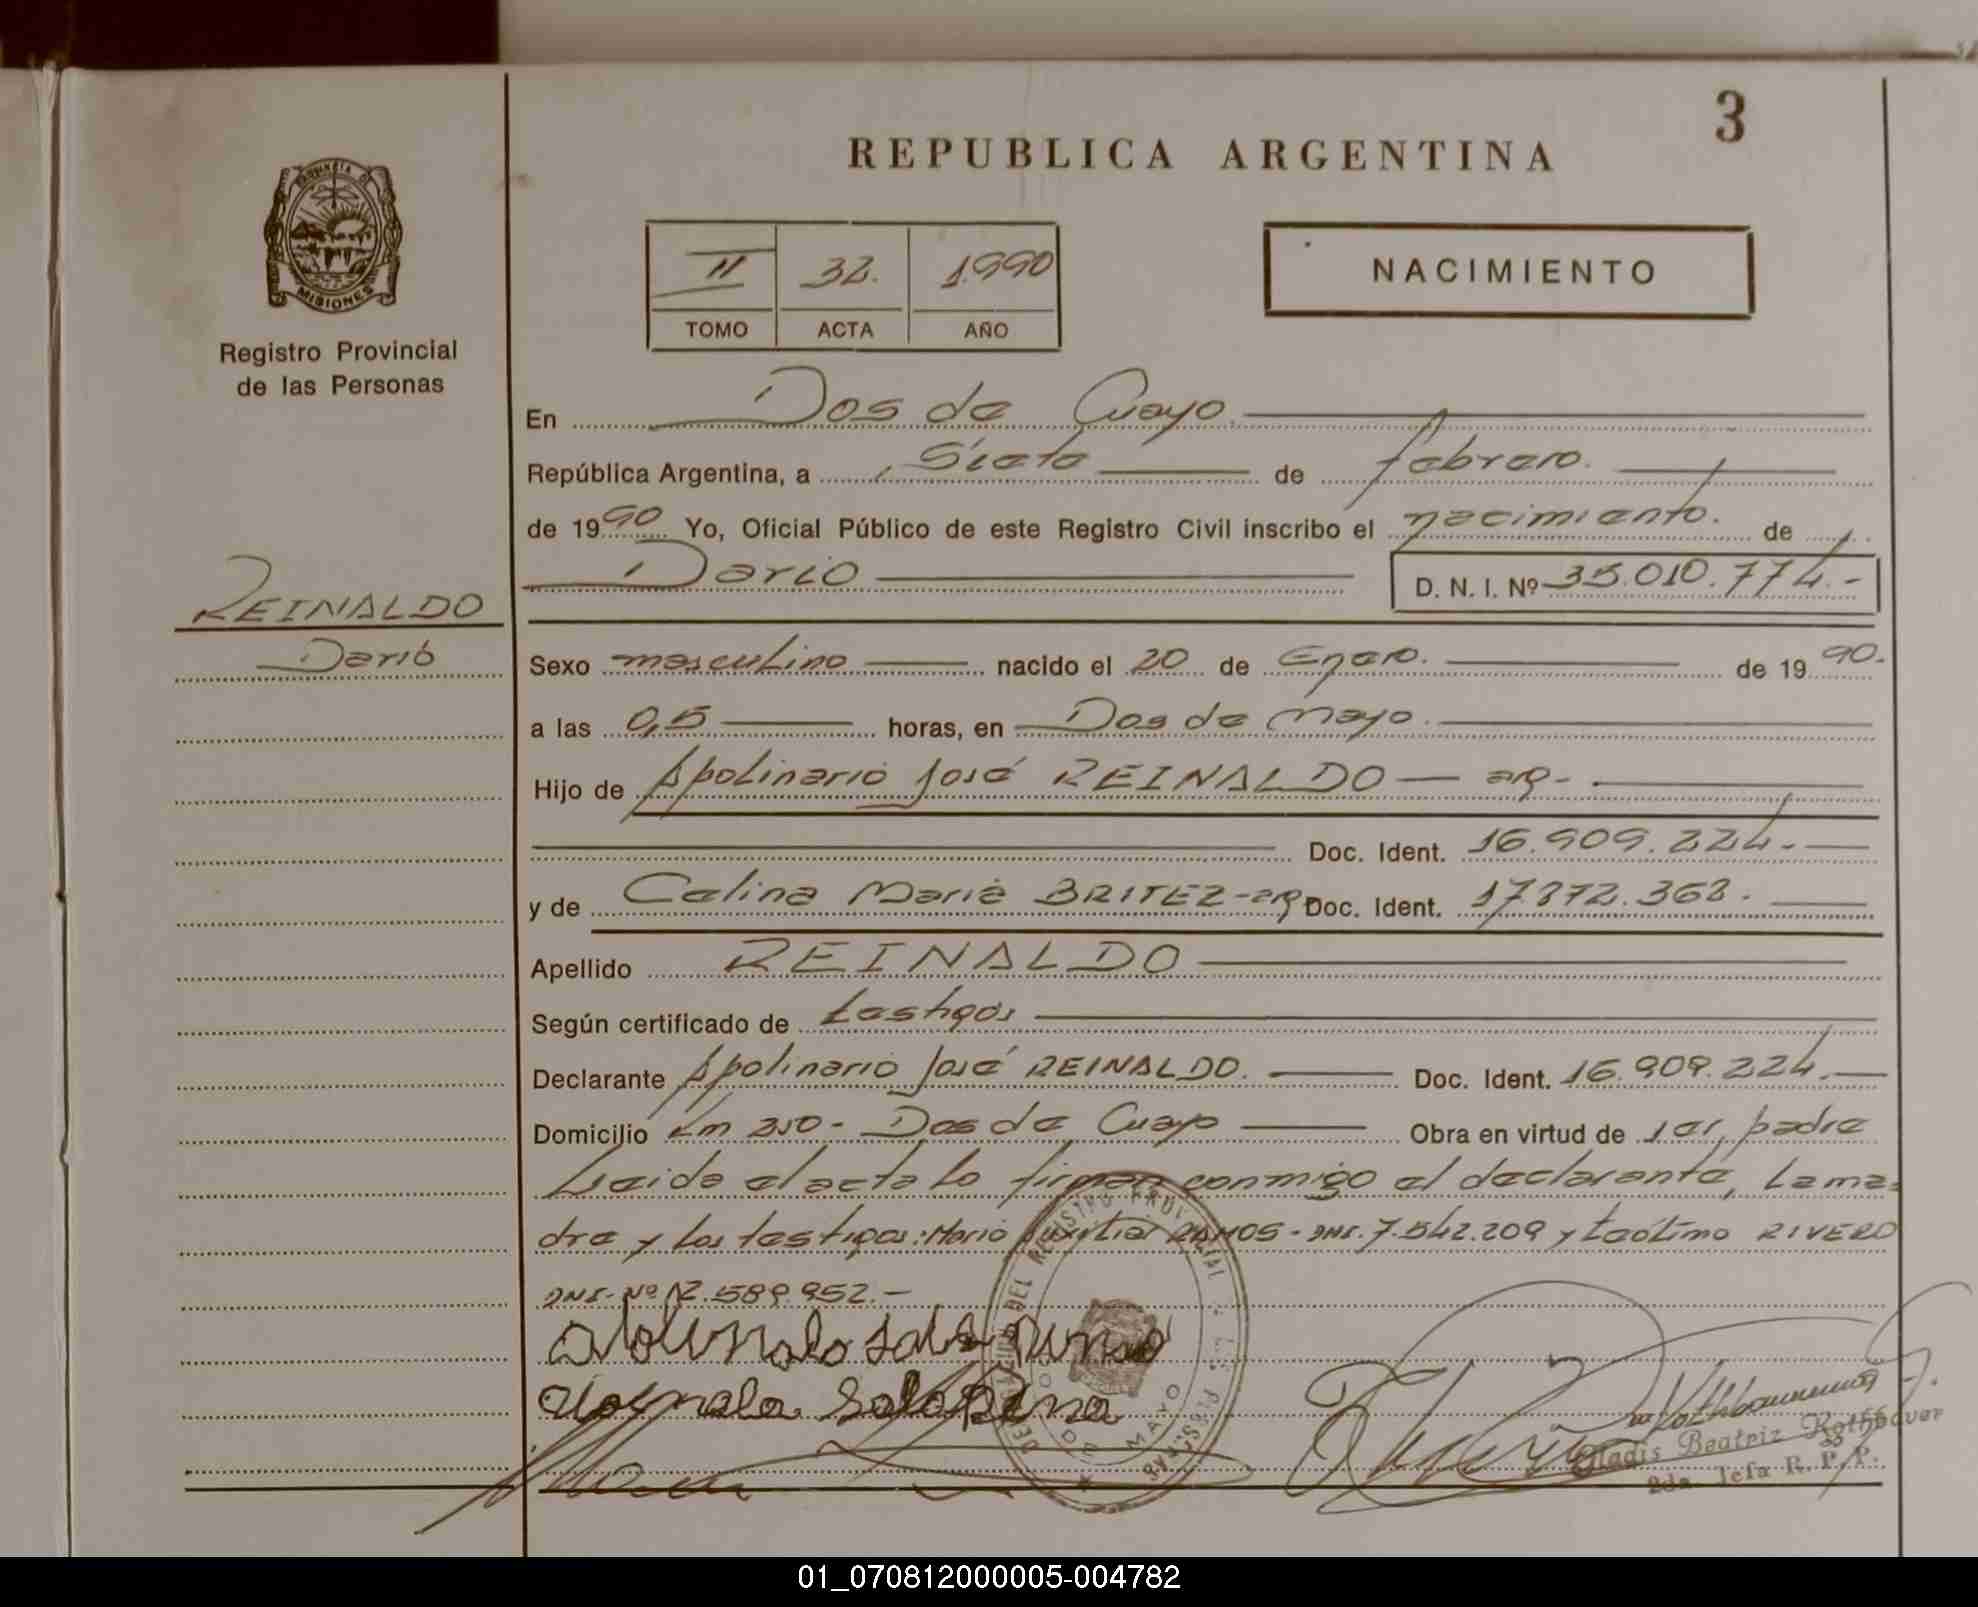 3
REPUBLICA ARGENTINA
PROVINCIA DE
MISIONES
Registro Provincial
de las Personas
II 32. 1.990
TOMO ACTA AÑO
NACIMIENTO
En Dos de Mayo
República Argentina, a Siete de febrero.
de 1990 Yo, Oficial Público de este Registro Civil inscribo el nacimiento. de
Dario D. N. I. Nº 35.010.774.-
REINALDO
Dario
Sexo masculino nacido el 20 de Enero. de 1990.
a las 0,5 horas, en Dos de Mayo.
Hijo de Apolinario José REINALDO — arg-
Doc. Ident. 16.909.224.-
y de Celina Maria BRITEZ-arg Doc. Ident. 17.872.368.
Apellido REINALDO
Según certificado de testigos
Declarante Apolinario José REINALDO. Doc. Ident. 16.909.224.
Domicilio Km 250- Dos de Mayo Obra en virtud de ser padre
Leida el acta lo firman conmigo el declarante, la ma-
dre y los testigos: Mario Auxilia RAMOS - DNI. 7.542.209 y teótimo RIVERO
DNI-Nº 12.589.952.-
DEL REGISTRO PROVINCIAL DE LAS PERSONAS
DOS DE MAYO
Gladis Beatriz Rothbauer
2da. Jefa R. P. P.
01_070812000005-004782